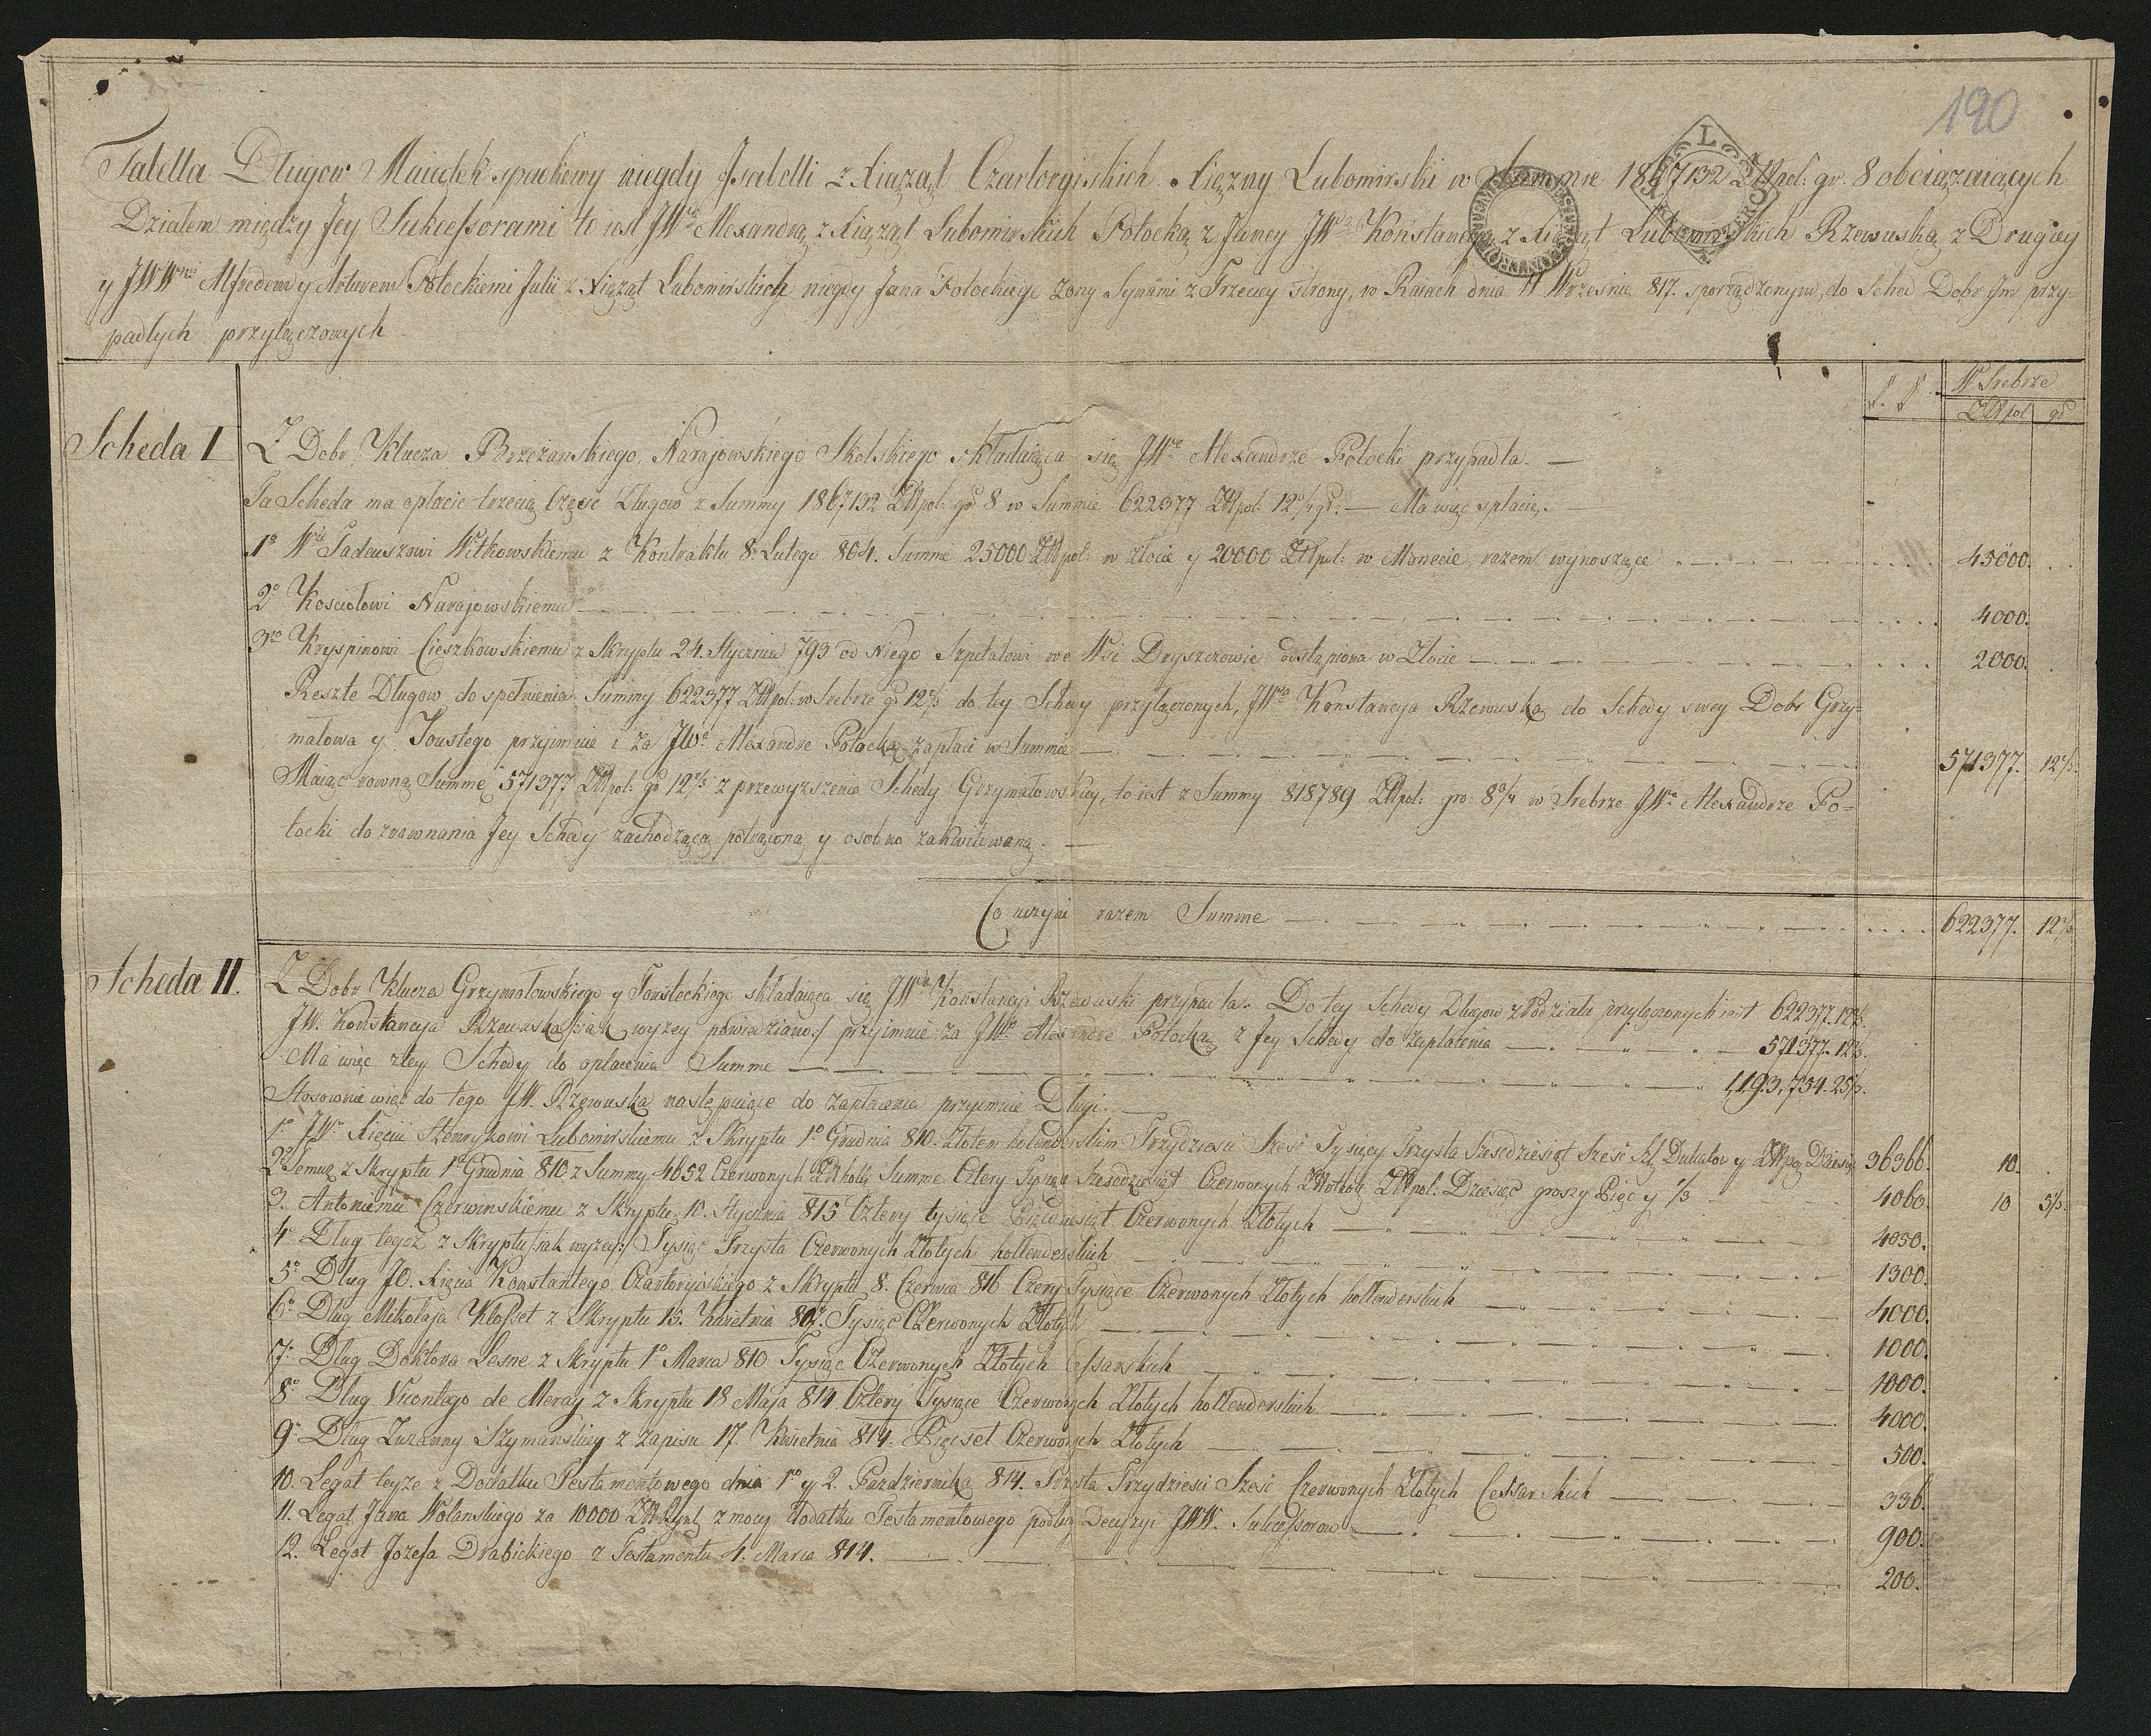 190
Tabella Długow Maiątek spadkowy niegdy Jzabelli z Xiąząt Czartoryiskich Xiężny Lubomirski w Summie 1867132 ZŁpol: gr. 8 obciązaiących
Działem między Jey Sukcessorami to iest JWą Alexandrą z Xiąząt Lubomirskich Potocką z Jedney JWą Konstancyą z Xiąząt Lubomirskich Rzewuską z Drugiey
y JWWmi Alfredem y Arturem Potockiemi Julii z Xiąząt Lubomirskich niegdy Jana Potockiego Zony Synami z Trzeciey strony, w Raiach dnia 11 Wrzesnia 817. sporządzonym, do Sched Dobr Jm przy=
padłych przyłączonych
W Srebrze
ZŁpol gr
Scheda I
Z Dobr Klucza Brzeżanskiego, Narajowskiego Skolskiego składaiąca się JWe Alexandrze Potocki przypadła. —
Ta Scheda ma opłacic trzecią Częsc Długow z Summy 1867132 ZŁpol: gr 8 w Summie 622377 ZŁpol: 12 2/3 gr: — Ma więc spłacic. —
1o Wu Tadeuszowi Witkowskiemu z Kontraktu 8. Lutego 804. Summe 25000 ZŁpol: w złocie y 20000 ZŁpol: w Monecie, razem wynoszące 45000.
2o Kosciołowi Narajowskiemu 4000.
3io Kryspinowi Cieszkowskiemu z Skryptu 24. Stycznia 793 od Niego Szpitalowi we Wsi Dryszczowie odstąpiona w Złocie 2000.
Reszte Długow do spełnienia Summy 622377 ZŁpol: w Srebrze gr 12 2/3 do tey Schedy przyłączonych, JWa Konstancya Rzewuska do Schedy swey Dobr Grzy=
małowa y Toustego przyimuie i za JWę Alexandre Potocką zapłaci w Summie 571377. 12 2/3.
Maiąc rowną Summę 571377 ZŁpol: gr 12 2/3 z przewyzszenia Schedy Grzymałowskiey, to iest z Summy 818789 ZŁpol: gro: 8 3/4 w Srebrze JWe Alexandrze Po=
tocki do zrownania Jey Schedy zachodzącą potrąconą y osobno zakwitowaną. —
Co uczyni razem Summe 622377. 12 2/3
Scheda II.
Z Dobr Klucza Grzymałowskiego y Tousteckiego składaiąca się JWe Konstancyi Rzewuski przypadła. Do tey Schedy Długow z Podziału przyłączonych iest 622377. 12 2/3.
JW. Konstancya Rzewuska /:iak wyzey powiedziano:/ przyimuie za JWę Alexandre Potocką z Jey Schedy do Zapłacenia 571377. 12 2/3.
Ma więc z tey Schedy do opłacenia Summe 1,193,754. 25 1/3.
Stosownie więc do tego JW. Rzewuska następuiące do Zapłacenia przyimuie Długi. —
1o JWu Xięciu Henrykowi Lubomirskiemu z Skryptu 1o Grudnia 810. Złotem hollenderskim Trzydziesci Szesc Tysięcy Trzysta Szescdziesiąt Szesc Dukatow y ZŁpo Dziesięc 36366. 10.
2o Temuz z Skryptu 1o Grudnia 810 z Summy 4652 Czerwonych Złł holl: Summe Cztery Tysiące Szescdziesiąt Czerwonych Złł holl: ZŁpol. Dziesięc groszy Pięc y 1/3 4060. 10 5 1/3.
3. Antoniemu Czerwinskiemu z Skryptu 10. Stycznia 815 Cztery tysiące Pięcdziesiąt Czerwonych Złotych 4050.
4o Dług tegoz z Skryptu /:iak wyzey:/ Tysiąc Trzysta Czerwonych Złotych hollenderskich 1300.
5o Dług JO. Xięcia Konstantego Czartoryiskiego z Skryptu 8. Czerwca 816 Cztery Tysiące Czerwonych Złotych hollenderskich 4000.
6o Dług Mikołaja Klosset z Skryptu 15. Kwietnia 807. Tysiąc Czerwonych Złotych 1000.
7o Dług Doktora Lesne z Skryptu 1o Marca 810 Tysiąc Czerwonych Złotych Cessarskich 1000.
8o Dług Vicontego de Meray z Skryptu 18 Maja 814. Cztery Tysiące Czerwonych Złotych hollenderskich 4000.
9o Dług Zuzanny Szymanskiey z zapisu 17. Kwietnia 814. Pięcset Czerwonych Złotych 500.
10. Legat teyze z Dodatku Testamentowego dnia 1o y 2. Pazdziernika 814. Trzysta Trzydziesci Szesc Czerwonych Złotych Cessarskich 336.
11. Legat Jana Wolanskiego za 10000 z mocy dodatku Testamentowego podług Decyzyi JWW. Sukcessorow 900.
12. Legat Jozefa Drabickiego z Testamentu 4. Marca 814. 200.